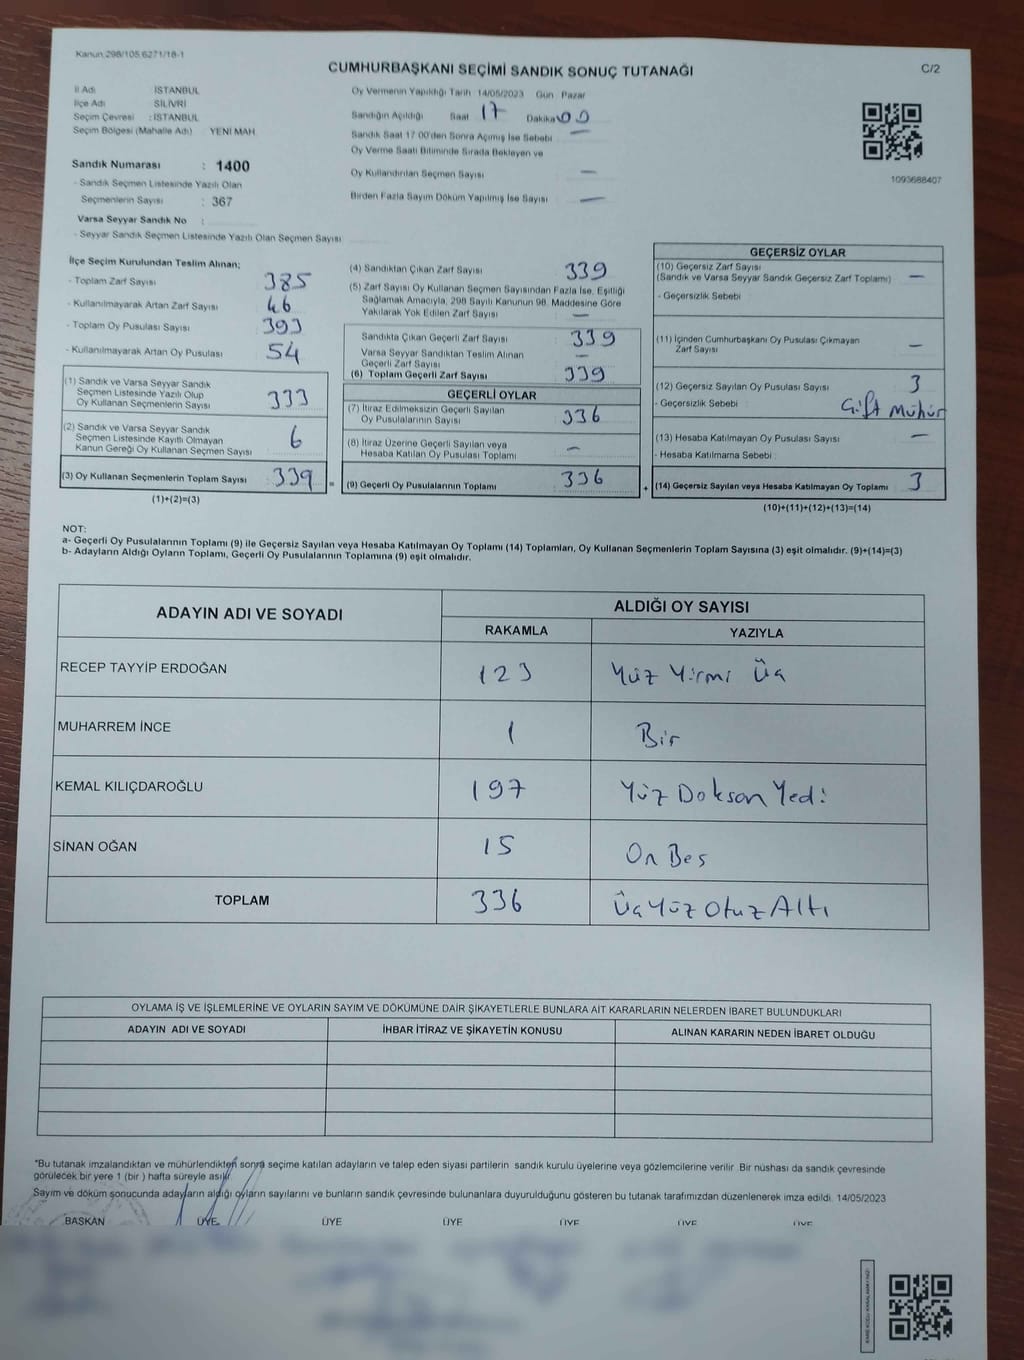 Kanun 298/105,6271/18-1
CUMHURBAŞKANI SEÇİMİ SANDIK SONUÇ TUTANAĞI
C/2
İl Adı İSTANBUL
İlçe Adı SİLİVRİ
Seçim Çevresi : İSTANBUL
Seçim Bölgesi (Mahalle Adı) YENİ MAH.
Sandık Numarası : 1400
- Sandık Seçmen Listesinde Yazılı Olan
Seçmenlerin Sayısı : 367
Varsa Seyyar Sandık No :
- Seyyar Sandık Seçmen Listesinde Yazılı Olan Seçmen Sayısı
Oy Vermenin Yapıldığı Tarih 14/05/2023 Gün Pazar
Sandığın Açıldığı Saat 17 Dakika 00
Sandık Saat 17 00'den Sonra Açılmış İse Sebebi —
Oy Verme Saati Bitiminde Sırada Bekleyen ve
Oy Kullandırılan Seçmen Sayısı —
Birden Fazla Sayım Döküm Yapılmış İse Sayısı —
1093688407
İlçe Seçim Kurulundan Teslim Alınan;
- Toplam Zarf Sayısı 385
- Kullanılmayarak Artan Zarf Sayısı 46
- Toplam Oy Pusulası Sayısı 393
- Kullanılmayarak Artan Oy Pusulası 54
(1) Sandık ve Varsa Seyyar Sandık
Seçmen Listesinde Yazılı Olup
Oy Kullanan Seçmenlerin Sayısı 333
(2) Sandık ve Varsa Seyyar Sandık
Seçmen Listesinde Kayıtlı Olmayan
Kanun Gereği Oy Kullanan Seçmen Sayısı 6
(3) Oy Kullanan Seçmenlerin Toplam Sayısı : 339 =
(1)+(2)=(3)
(4) Sandıktan Çıkan Zarf Sayısı 339
(5) Zarf Sayısı Oy Kullanan Seçmen Sayısından Fazla İse, Eşitliği
Sağlamak Amacıyla, 298 Sayılı Kanunun 98. Maddesine Göre
Yakılarak Yok Edilen Zarf Sayısı —
Sandıkta Çıkan Geçerli Zarf Sayısı 339
Varsa Seyyar Sandıktan Teslim Alınan
Geçerli Zarf Sayısı —
(6) Toplam Geçerli Zarf Sayısı 339
GEÇERLİ OYLAR
(7) İtiraz Edilmeksizin Geçerli Sayılan
Oy Pusulalarının Sayısı 336
(8) İtiraz Üzerine Geçerli Sayılan veya
Hesaba Katılan Oy Pusulası Toplamı —
(9) Geçerli Oy Pusulalarının Toplamı 336 +
GEÇERSİZ OYLAR
(10) Geçersiz Zarf Sayısı
(Sandık ve Varsa Seyyar Sandık Geçersiz Zarf Toplamı) —
- Geçersizlik Sebebi
(11) İçinden Cumhurbaşkanı Oy Pusulası Çıkmayan
Zarf Sayısı —
(12) Geçersiz Sayılan Oy Pusulası Sayısı 3
- Geçersizlik Sebebi Çift Mühür
(13) Hesaba Katılmayan Oy Pusulası Sayısı —
- Hesaba Katılmama Sebebi
(14) Geçersiz Sayılan veya Hesaba Katılmayan Oy Toplamı 3
(10)+(11)+(12)+(13)=(14)
NOT:
a- Geçerli Oy Pusulalarının Toplamı (9) ile Geçersiz Sayılan veya Hesaba Katılmayan Oy Toplamı (14) Toplamları, Oy Kullanan Seçmenlerin Toplam Sayısına (3) eşit olmalıdır. (9)+(14)=(3)
b- Adayların Aldığı Oyların Toplamı, Geçerli Oy Pusulalarının Toplamına (9) eşit olmalıdır.
ADAYIN ADI VE SOYADI ALDIĞI OY SAYISI
RAKAMLA YAZIYLA
RECEP TAYYİP ERDOĞAN 123 Yüz Yirmi Üç
MUHARREM İNCE 1 Bir
KEMAL KILIÇDAROĞLU 197 Yüz Doksan Yedi
SİNAN OĞAN 15 On Beş
TOPLAM 336 Üç Yüz Otuz Altı
OYLAMA İŞ VE İŞLEMLERİNE VE OYLARIN SAYIM VE DÖKÜMÜNE DAİR ŞİKAYETLERLE BUNLARA AİT KARARLARIN NELERDEN İBARET BULUNDUKLARI
ADAYIN ADI VE SOYADI İHBAR İTİRAZ VE ŞİKAYETİN KONUSU ALINAN KARARIN NEDEN İBARET OLDUĞU
"Bu tutanak imzalandıktan ve mühürlendikten sonra seçime katılan adayların ve talep eden siyasi partilerin sandık kurulu üyelerine veya gözlemcilerine verilir. Bir nüshası da sandık çevresinde
görülecek bir yere 1 (bir ) hafta süreyle asılır.
Sayım ve döküm sonucunda adayların aldığı oyların sayılarını ve bunların sandık çevresinde bulunanlara duyurulduğunu gösteren bu tutanak tarafımızdan düzenlenerek imza edildi. 14/05/2023
BAŞKAN ÜYE ÜYE ÜYE ÜYE ÜYE ÜYE